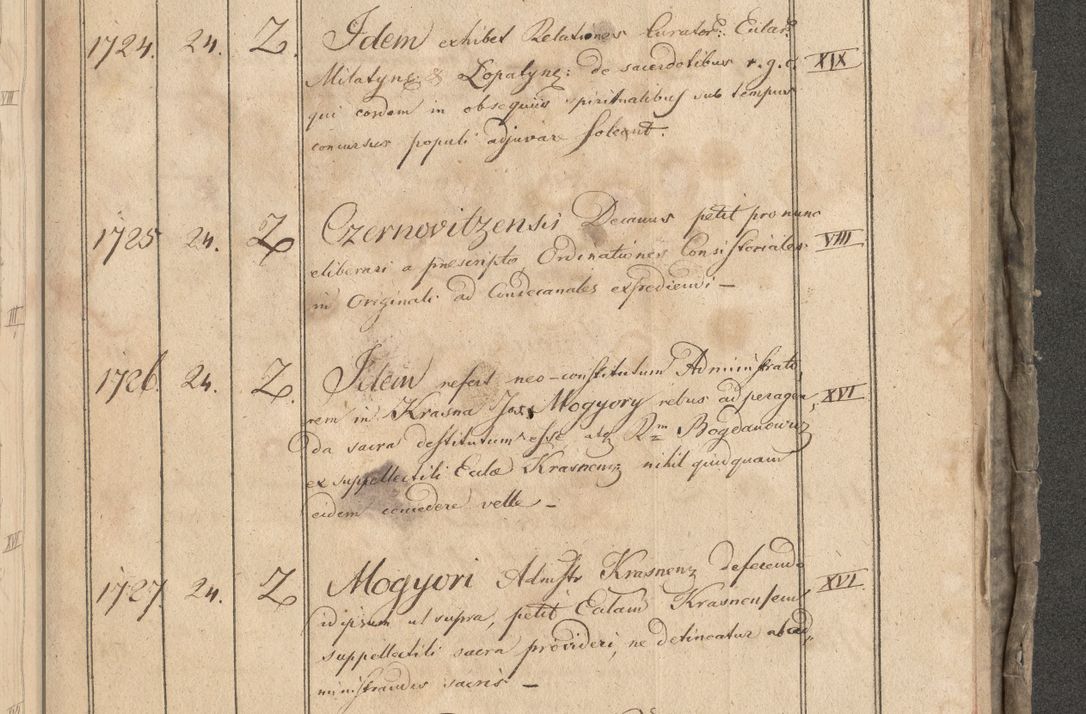 1724. 24. Z. Idem exhibet Relationes Curator: Eclar:
Milatyn: & Lopatyn: de sacerdotibus r. g. c. XIX
qui eordem in obsequiis spiritualibus sub tempus
concursus populi adjuvare solent.
1725 24. Z Czernovitzensis Decanus petit pro nunc
eliberari a prescripto Ordinationes Consistoriales VIII
in Originali ad Condecanales expediendi —
1726. 24. Z. Idem refert neo-constitutum Administrato
rem in Krasna Jos. Mogyory rebus ad peragen, XVI
da sacra destitutum esse atq Rm Bogdanowicz
ex suppellectili Eclae Krasnenz nihil quidquam
eidem concedere velle —
1727. 24. Z Mogyori Admstr Krasnenz deferendo XVI
id ipsum ut supra, petit Eclam Krasnensem
suppellectili sacra provideri, ne detineatur ab ad,,
ministrandis sacris —
VIII
III
XVI